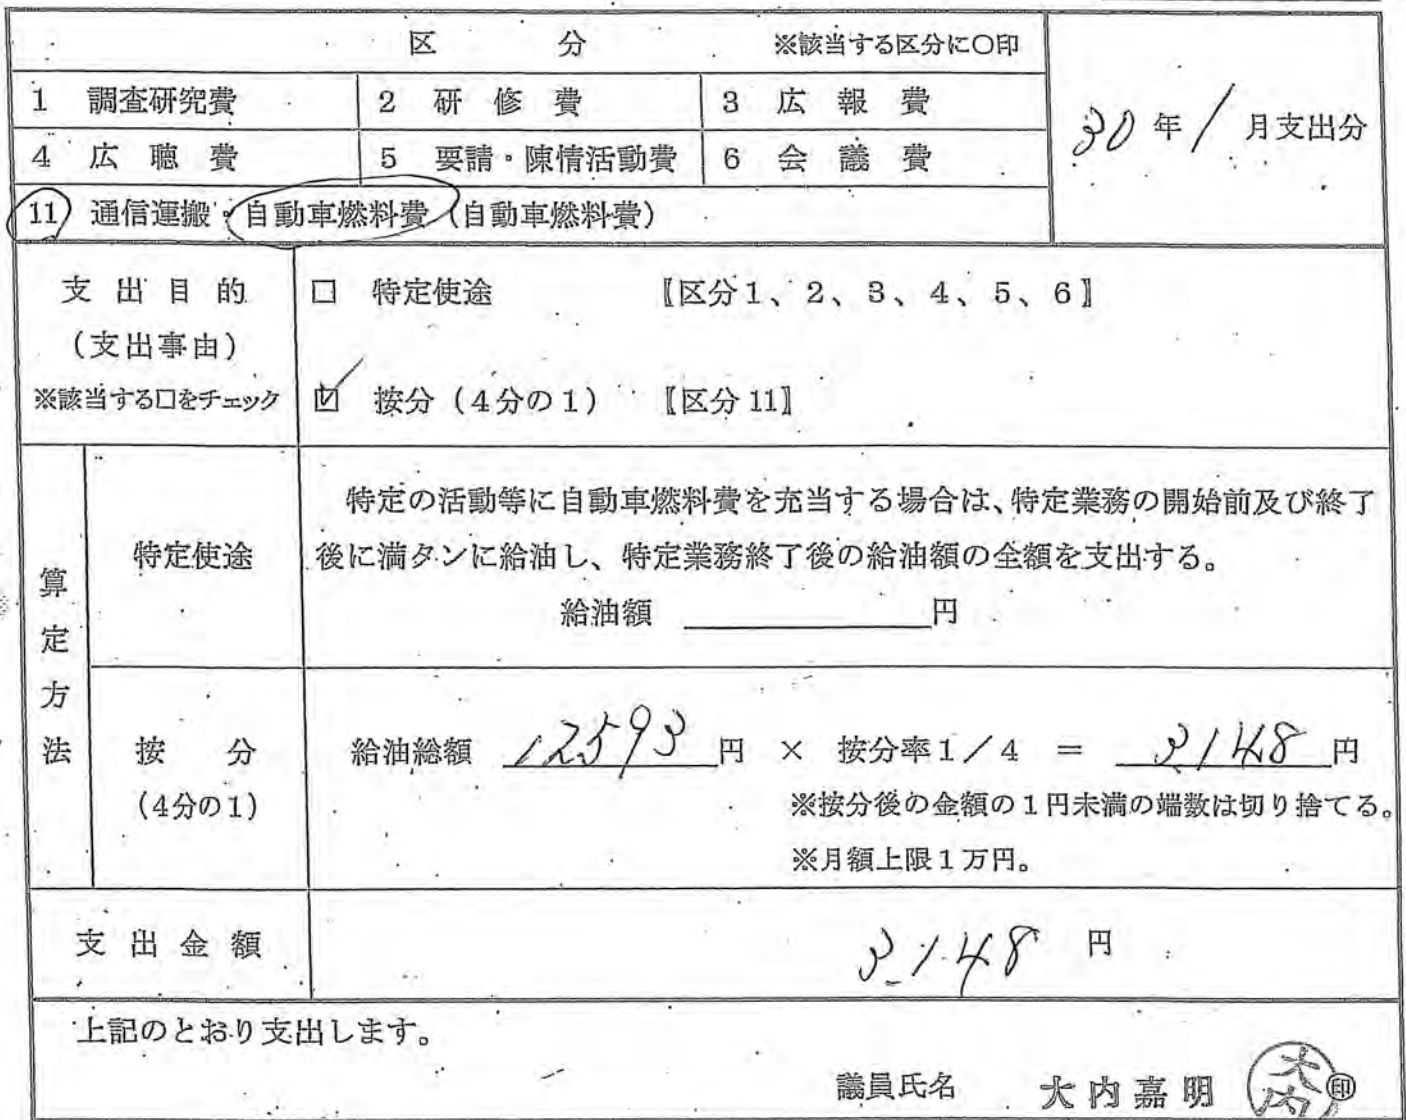 区 分 ※該当する区分に○印
30年1月支出分
1 調査研究費 2 研修費 3 広報費
4 広聴費 5 要請・陳情活動費 6 会議費
11 通信運搬・自動車燃料費(自動車燃料費)
支出目的
(支出事由)
※該当する口をチェック
□ 特定使途 〚区分1、2、3、4、5、6〛
☑ 按分(4分の1) 〚区分11〛
算定方法
特定使途
特定の活動等に自動車燃料費を充当する場合は、特定業務の開始前及び終了
後に満タンに給油し、特定業務終了後の給油額の全額を支出する。
給油額 円
按分
(4分の1)
給油総額 12593円 × 按分率1/4 = 3148円
※按分後の金額の1円未満の端数は切り捨てる。
※月額上限1万円。
支出金額 3148円
上記のとおり支出します。
議員氏名 大内嘉明 ㊞
大内